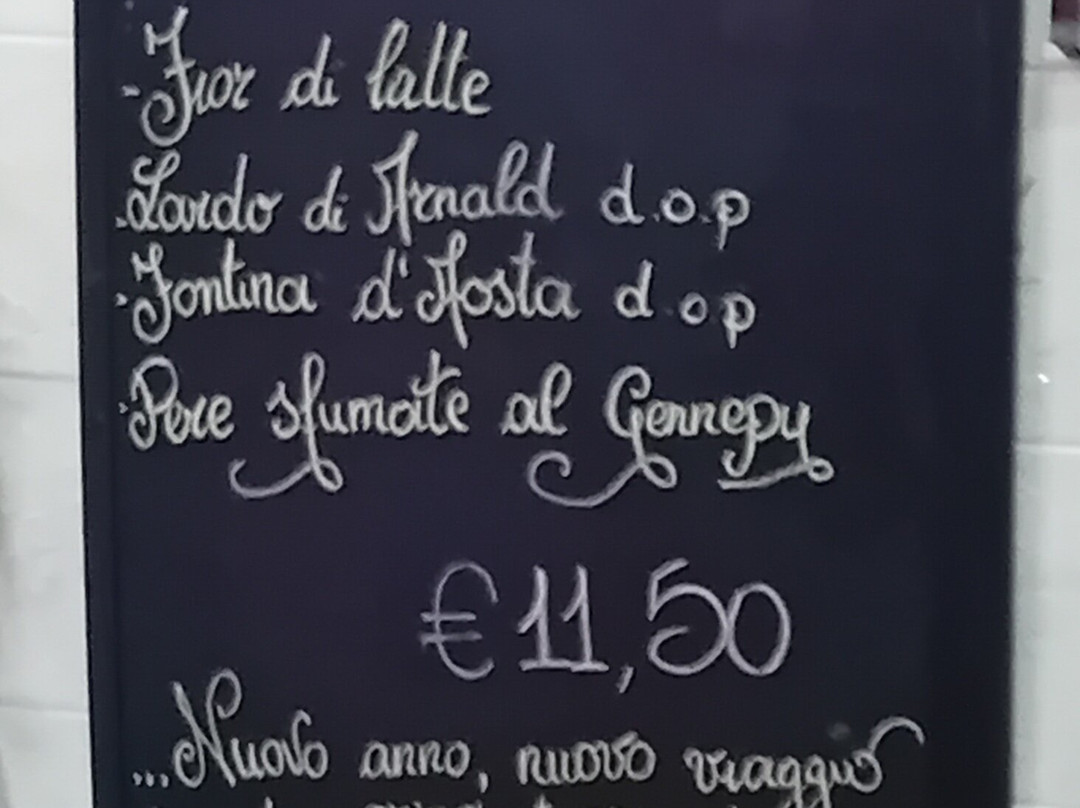 - Fior di latte
- Lardo di Arnald d.o.p
- Fontina d'Aosta d.o.p
- Pere sfumate al Gennepy
€ 11,50
...Nuovo anno, nuovo viaggio